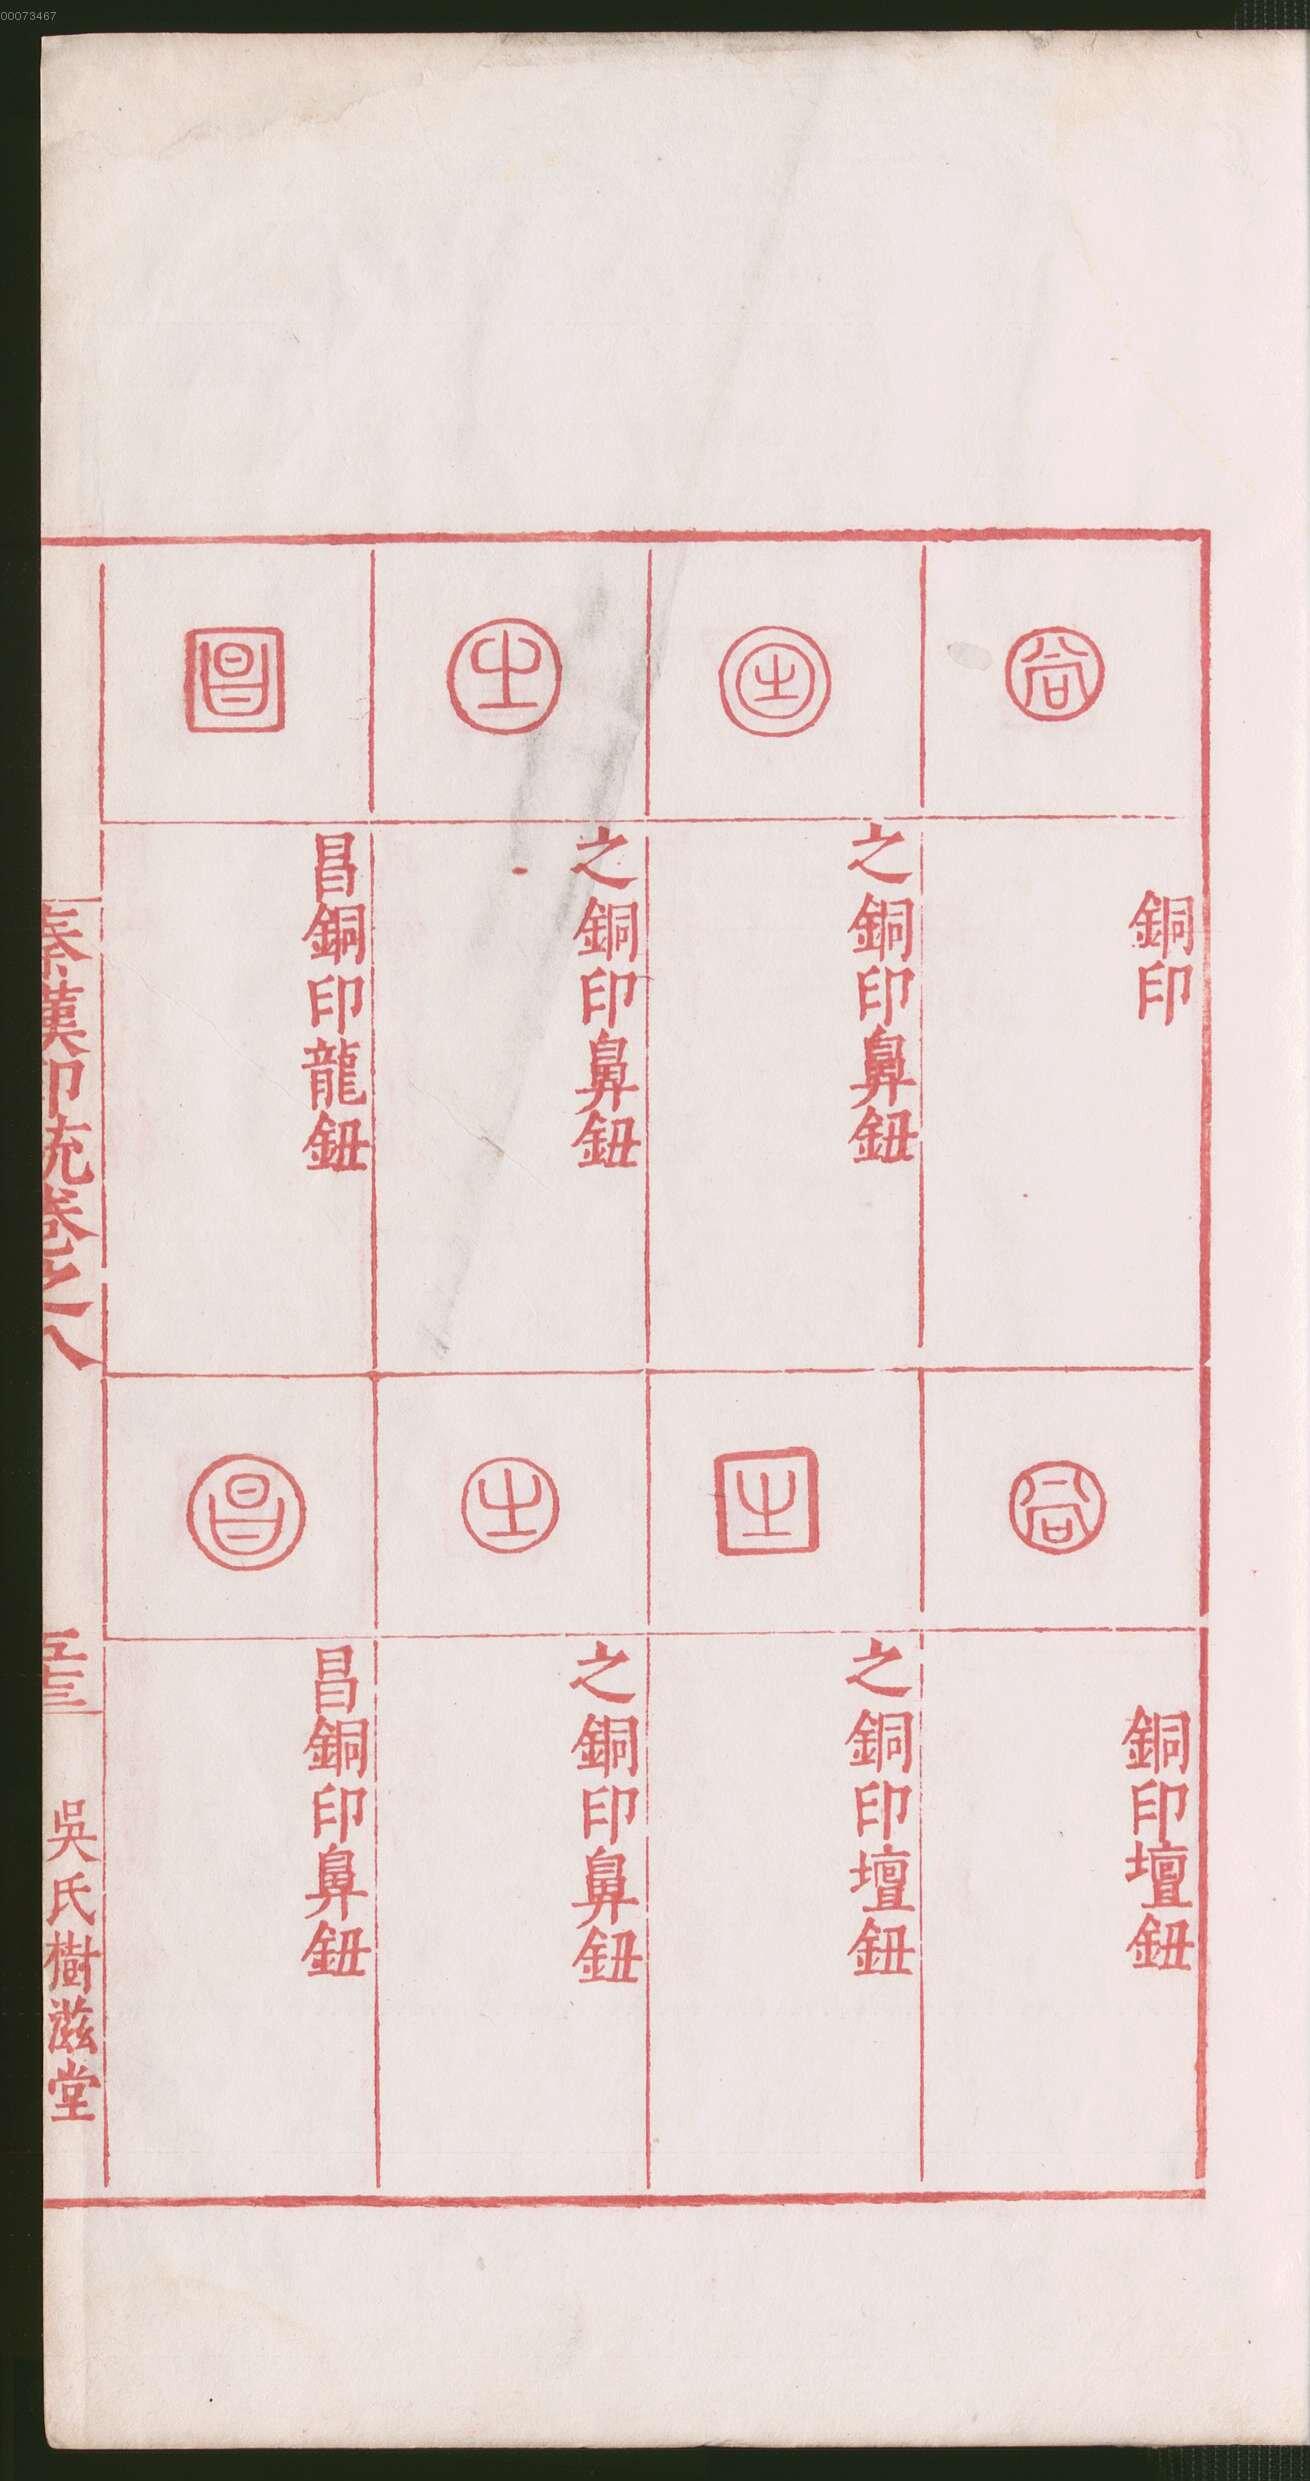 00073467
銅印
之銅印鼻鈕
之銅印鼻鈕
昌銅印龍鈕
銅印壇鈕
之銅印壇鈕
之銅印鼻鈕
昌銅印鼻鈕
秦漢印統卷之八
五十三
吳氏樹滋堂